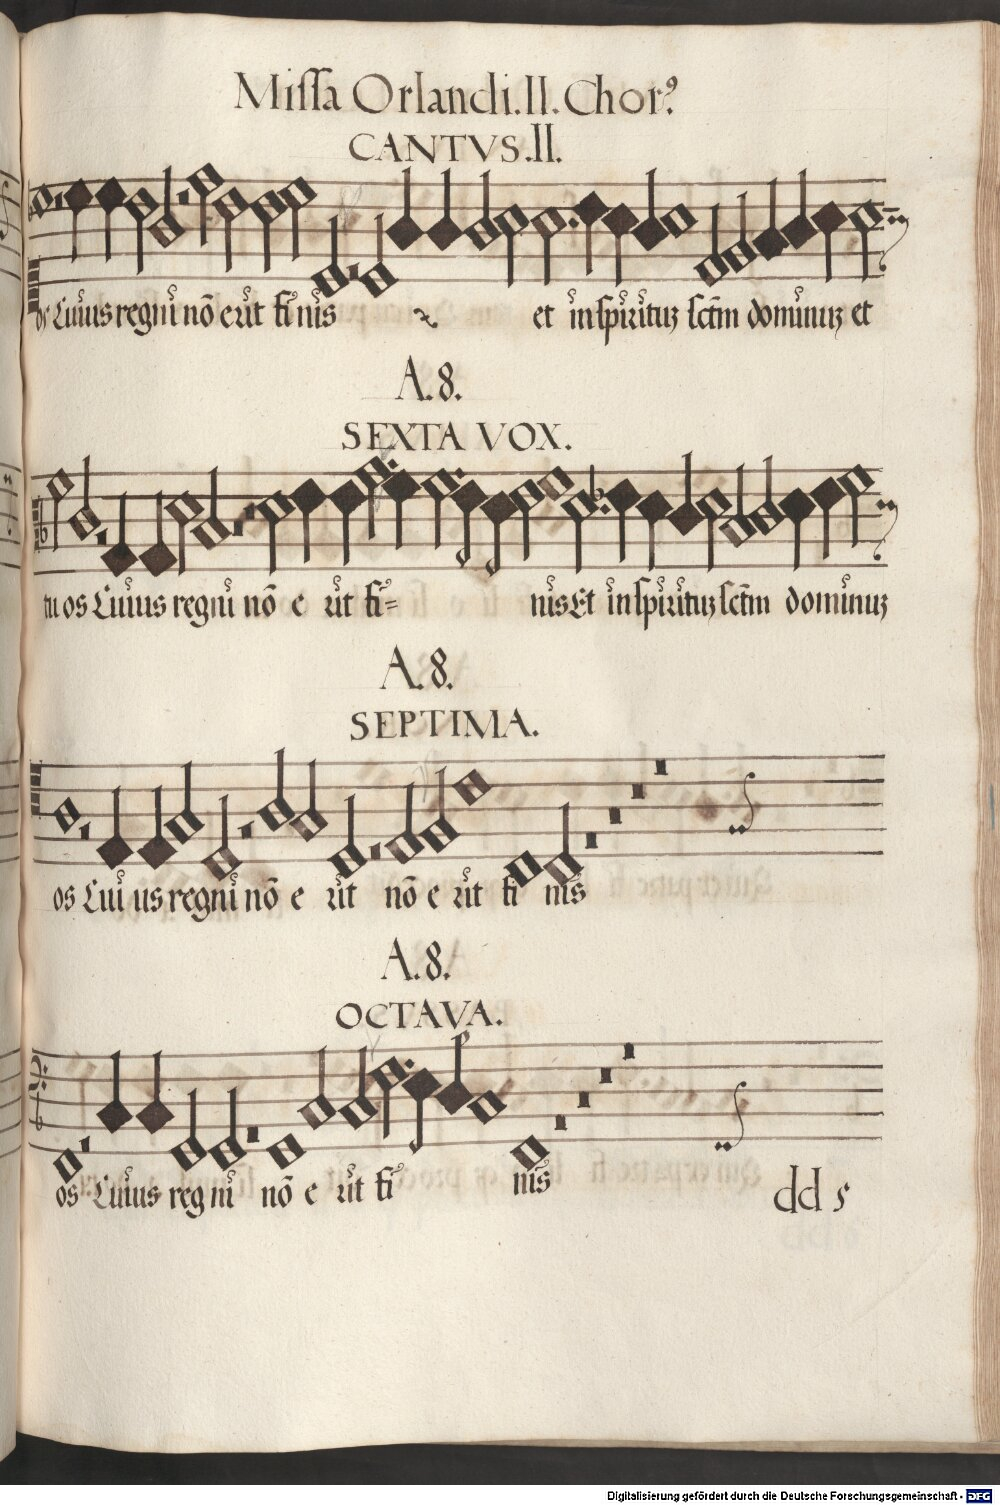 Missa Orlandi. II. Chor⁹
CANTVS. II.
os Cuius regni nō erit fi nis et in spiritū sctm dominū et
A. 8.
SEXTA VOX.
tu os Cuius regni nō e rit fi= nis Et in spiritū sctm dominū
A. 8.
SEPTIMA.
os Cui us regni nō e rit nō e rit fi nis
A. 8.
OCTAVA.
os Cuius reg ni nō e rit fi nis
dd 5
Digitalisierung gefördert durch die Deutsche Forschungsgemeinschaft - DFG